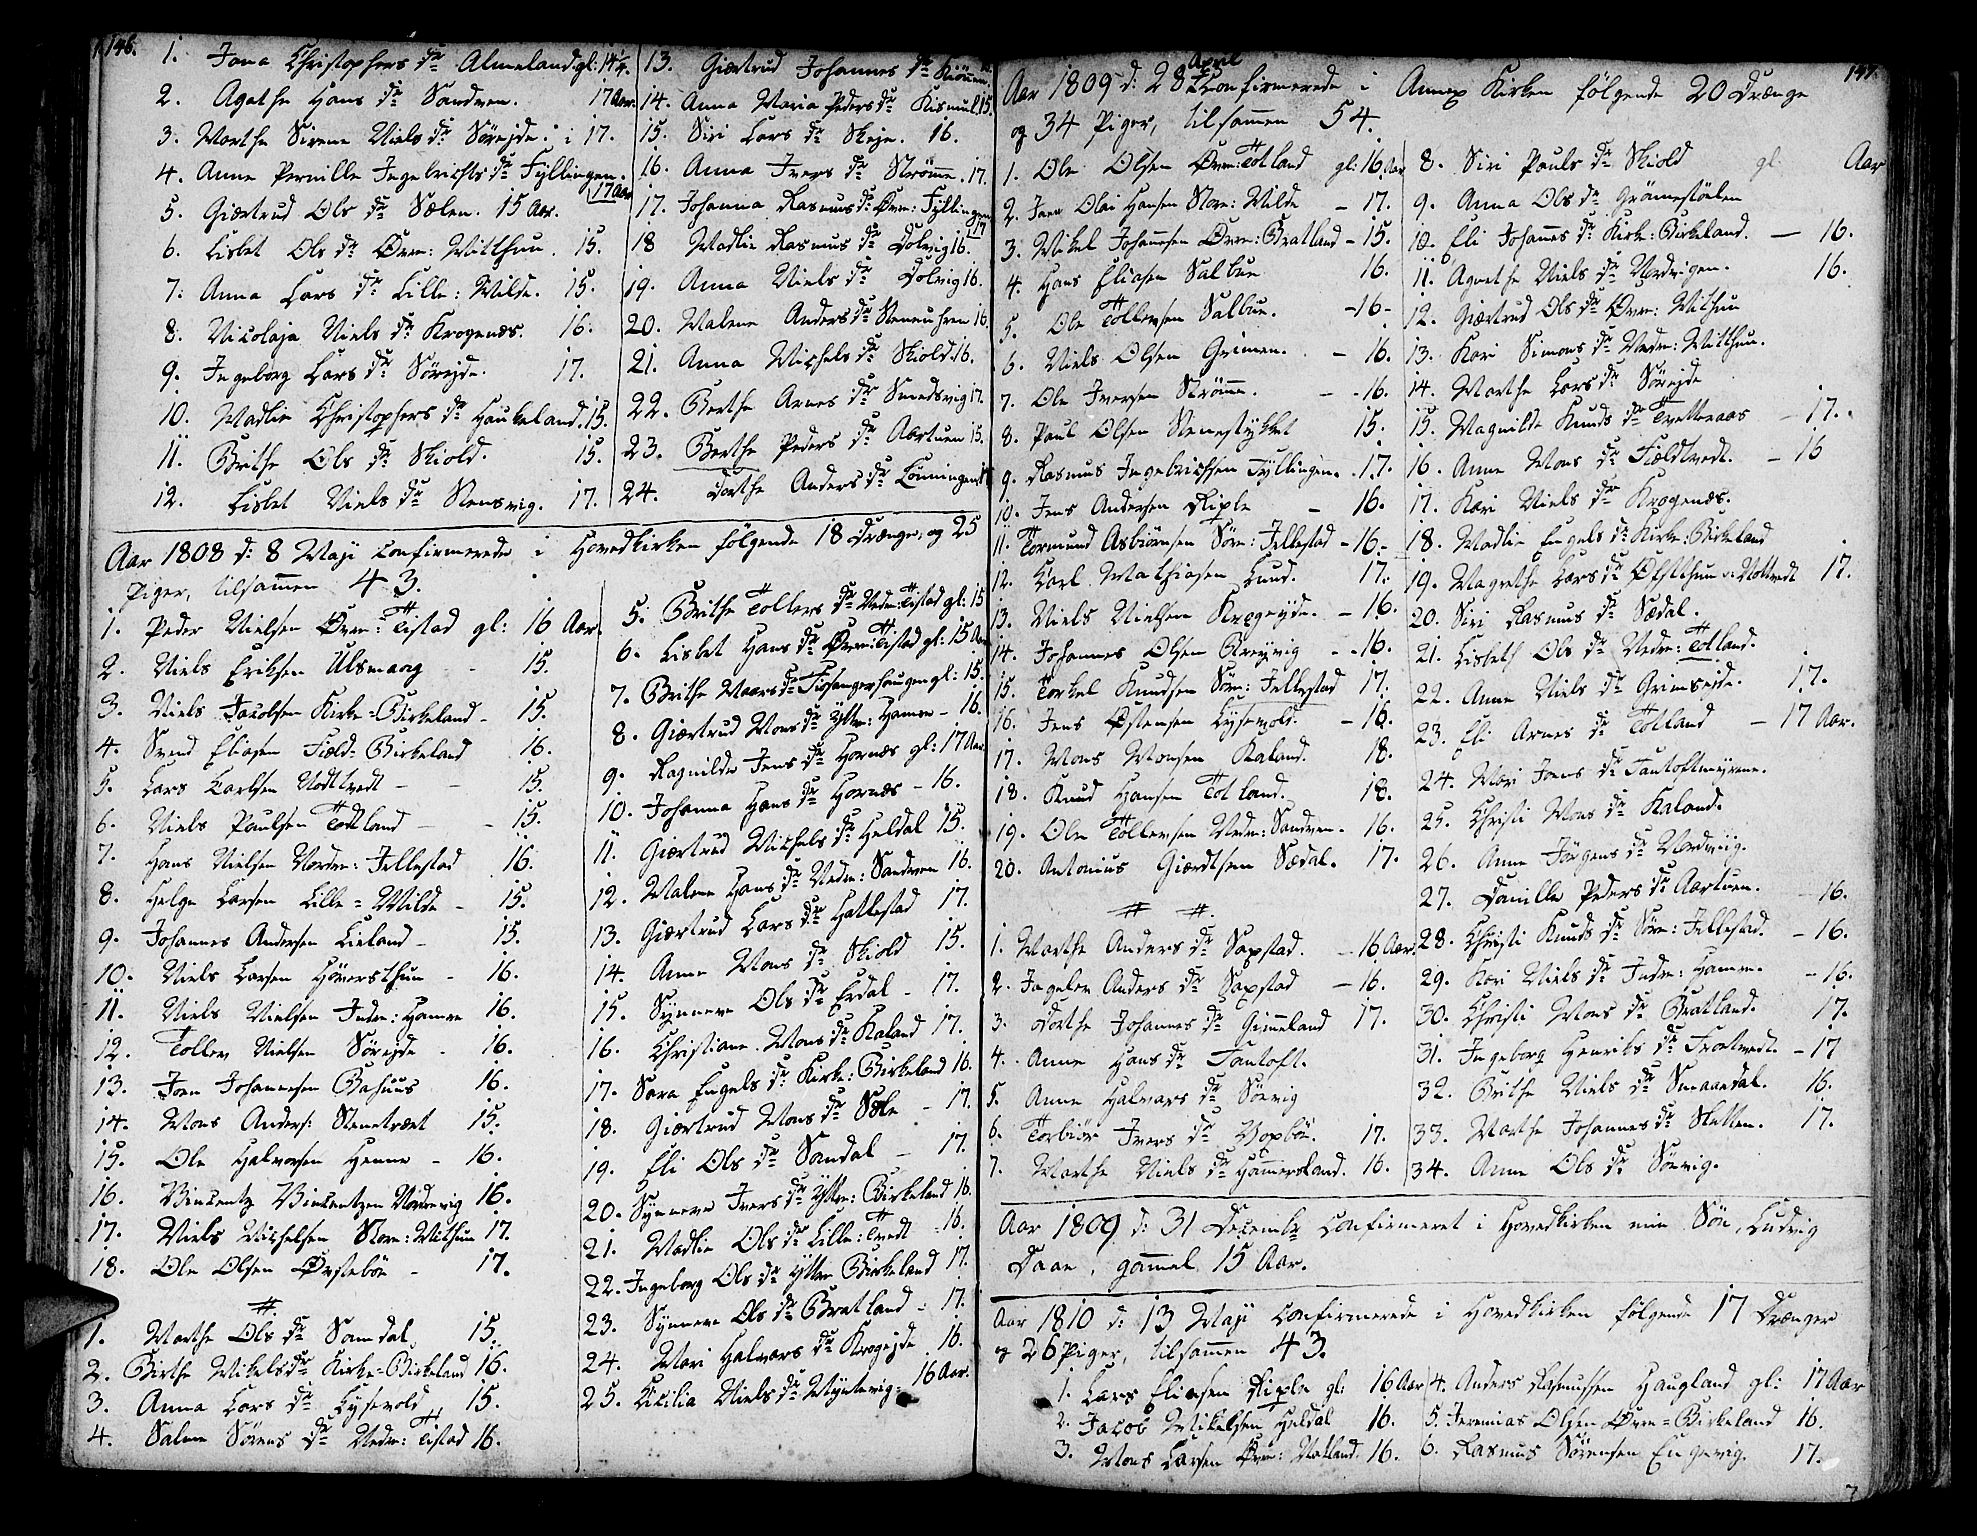 146.
1. Jona Christophers dr Almeland. gl: 14¼.
2. Agathe Hans dr Sandven. 17 Aar.
3. Marthe Sirene Niels dr Sørejde 17.
4. Anne Pernille Ingebrichts dr Fyllingen. 17 Aar
5. Giærtrud Ols dr Sælen. 15 Aar.
6. Lisbet Ols dr Øvre: Mitthun. 15.
7. Anna Lars dr Lille: Milde. 15.
8. Nicolaja Niels dr Krogenæs. 16.
9. Ingeborg Lars dr Sørejde. 17.
10. Madlie Christophers dr Haukeland. 15.
11. Brithe Ols dr Skiold. 15.
12. Lisbet Niels dr Stensvig. 17.
13. Giærtrud Johannes dr
14. Anna Maria Peders dr Kismul. 15.
15. Siri Lars dr Skeje. 16.
16. Anna Ivers dr Strømme. 17.
17. Johanna Rasmus dr Øvre: Fyllingen 17
18 Madlie Rasmus dr Dolvig 16.
19. Anna Niels dr Dolvig 16.
20. Malene Anders dr Steneuhren 16.
21. Anna Michels dr Skiold. 16.
22. Berthe Arnes dr Smedsvig 17.
23. Berthe Peders dr Aartuen 15.
24. Dorthe Anders dr Lønningen
Aar 1808 d: 8 Maji confirmerede i Hovedkirken følgende 18 Drænge, og 25
Piger, tilsamen 43.
1. Peder Nielsen Øvre: Titstad gl: 16 Aar.
2. Niels Eriksen Ulsmaag - 15.
3. Niels Jacobsen Kirke-Birkeland - 15.
4. Svend Eliasen Field-Birkeland 16.
5. Lars Carlsen Nodttvedt - 15.
6. Niels Paulsen Totland - 15.
7. Hans Nielsen Nordre: Jellestad 16.
8. Helge Larsen Lille-Milde - 15.
9. Johannes Andersen Lieland - 15.
10. Niels Larsen Høversthun - 16.
11. Niels Nielsen Indre: Hamre 16.
12. Tollev Nielsen Sørejde - 16.
13. Joen Johannesen Bahuus 16.
14. Mons Anders: Stenetræet 15.
15. Ole Halvorsen Henne - 16.
16. Vincentz Vincentzen Nordvig 16.
17. Niels Michelsen Store: Mithun 17.
18. Ole Olsen Ørstebøe - 17.
#.
1. Marthe Ols dr Samdal 15.
2. Birthe Mikels dr Kirke-Birkeland 16.
3. Anna Lars dr Lysevold 15.
4. Salme Sørens dr Nedre: Titstad 16.
5. Brithe Tollevs dr Nedre: Titstad gl: 15
6. Lisbet Hans dr Øvre: Titstad gl: 15 Aar
7. Brithe Noars dr Fiosangerhougen gl: 15.
8. Giærtrud Mons dr Ytter: Hamre - 16.
9. Ragnilde Jens dr Hornæs gl: 17 Aar.
10. Johanna Hans dr Hornæs - 16.
11. Giærtrud Michels dr Heldal 15.
12. Malene Hans dr Nedre: Sandven 16.
13. Giærtrud Lars dr Hattestad 17.
14. Anne Mons dr Skiold 15.
15. Synneve Ols dr Erdal - 17.
16. Christiane Mons dr Kaland 17.
17. Sara Engels dr Kirke: Birkeland 16.
18. Giærtrud Mons dr Søle - 17.
19. Eli Ols dr Sandal - 17.
20. Synneve Ivers dr Ytter: Birkeland 16.
21. Madlie Ols dr Lille: Tvedt - 16.
22. Ingeborg Ols dr Ytter Birkeland 17.
23. Synneve Ols dr Bratland - 17.
24. Mari Halvars dr Krogejde 16.
25. Cicilia Niels dr Myntevig. 16 Aar.
147.
Aar 1809 d: 28 April Confirmerede i Annex Kirken følgende 20 Drænge
og 34 Piger, tilsamen 54.
1. Ole Olsen Øvre: Totland gl: 16 Aar
2. Joen Olai Hansen Store: Milde - 17.
3. Mikel Johannesen Øvre: Bratland - 15.
4. Hans Eliasen Salbue 16.
5. Ole Tollevsen Salbue. -16-
6. Niels Olsen Grimen. - 16.
7. Ole Iversen Strømme. - 16.
8. Paul Olsen Stenestykket 15.
9. Rasmus Ingebrichtsen Fyllingen. 17.
10. Jens Andersen Riple - 16.
11. Tormund Asbiørnsen Søre: Jellestad -16.-
12. Carl Mathiasen Lund. 17.
13. Niels Nielsen Krogejde - 16.
14. Johannes Olsen Birejvig - 16.
15. Torkel Knudsen Søre: Jellestad 17.
16. Jens Østensen Lysevold. - 16.
17. Mons Monsen Kaland. 18.
18. Knud Hansen Totland. 18.
19. Ole Tollevsen Nedre: Sandven. 16.
20. Antonius Giærdtsen Sædal. 17.
# #.
1. Marthe Anders dr Sapstad. - 16 Aar.
2. Ingelev Anders dr Sapstad - 16.
3. Dorthe Johannes dr Gimeland 17.
4. Anne Hans dr Fantoft.
5. Anne Halvars dr Søevig
6. Torbiør Ivers dr Hopbøe. 17.
7. Marthe Niels dr Hamersland. 16.
8. Siri Pauls dr Skiold gl: Aar
9. Anna Ols dr Grønnestølen
10. Eli Johannes dr Kirke: Birkeland. - 16.
11. Agathe Niels dr Nordvigen. 16.
12. Giærtrud Ols dr Øvre: Mithun
13. Kari Simons dr Nedre: Mitthun.
14. Marthe Lars dr Sørejde
15. Magnilde Knuds dr Tvetteraas - 17.
16. Anne Mons dr Fieldtvedt. - 16
17. Kari Niels dr Krogenæs.
18. Madlie Engels dr Kirke: Birkeland
19. Magrethe Lars dr Øfstthun v: Nottvedt 17.
20. Siri Rasmus dr Sædal.
21. Lisbeth Ols dr Nedre: Totland.
22. Anne Niels dr Grimsejde. 17.
23. Eli Arnes dr Totland - 17 Aar.
24. Mari Joens dr Fantoftmyrene.
25. Christi Mons dr Kaland.
26. Anne Jørgens dr Nordviig.
27. Danille Peders dr Aartuen. 16.
28. Christi Knuds dr Søre: Jellestad. - 16.
29. Kari Niels dr Indre: Hamre. - 16.
30. Christi Mons dr Bratland. 17.
31. Ingeborg Henriks dr Trætvedt. - 17
32. Brithe Niels dr Smaaedal. 16.
33. Marthe Johannes dr Sletten. 17.
34. Anne Ols dr Søevig.
Aar 1809 d: 31 Decembr confirmeret i Hovedkirken min Søn, Ludvig
Daae, gamel 15 Aar.
Aar 1810 d: 13 Maji confirmerede i Hovedkirken følgende 17 Drænger
og 26 Piger, tilsamen 43.
1. Lars Eliasen Riple gl: 16 Aar
2. Jacob Mikelsen Heldal 16.
3. Mons Larsen Øvre: Natland 16.
4. Anders Rasmussen Haugland gl: 17 Aar
5. Jeremias Olsen Øvre-Birkeland 16.
6. Rasmus Sørensen Engevig. 17.
7